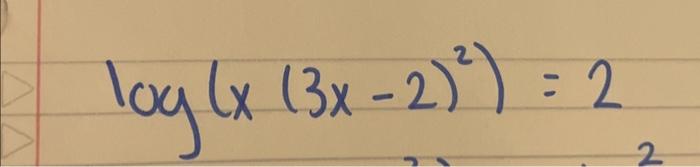 log(x (3x - 2)²) = 2
2